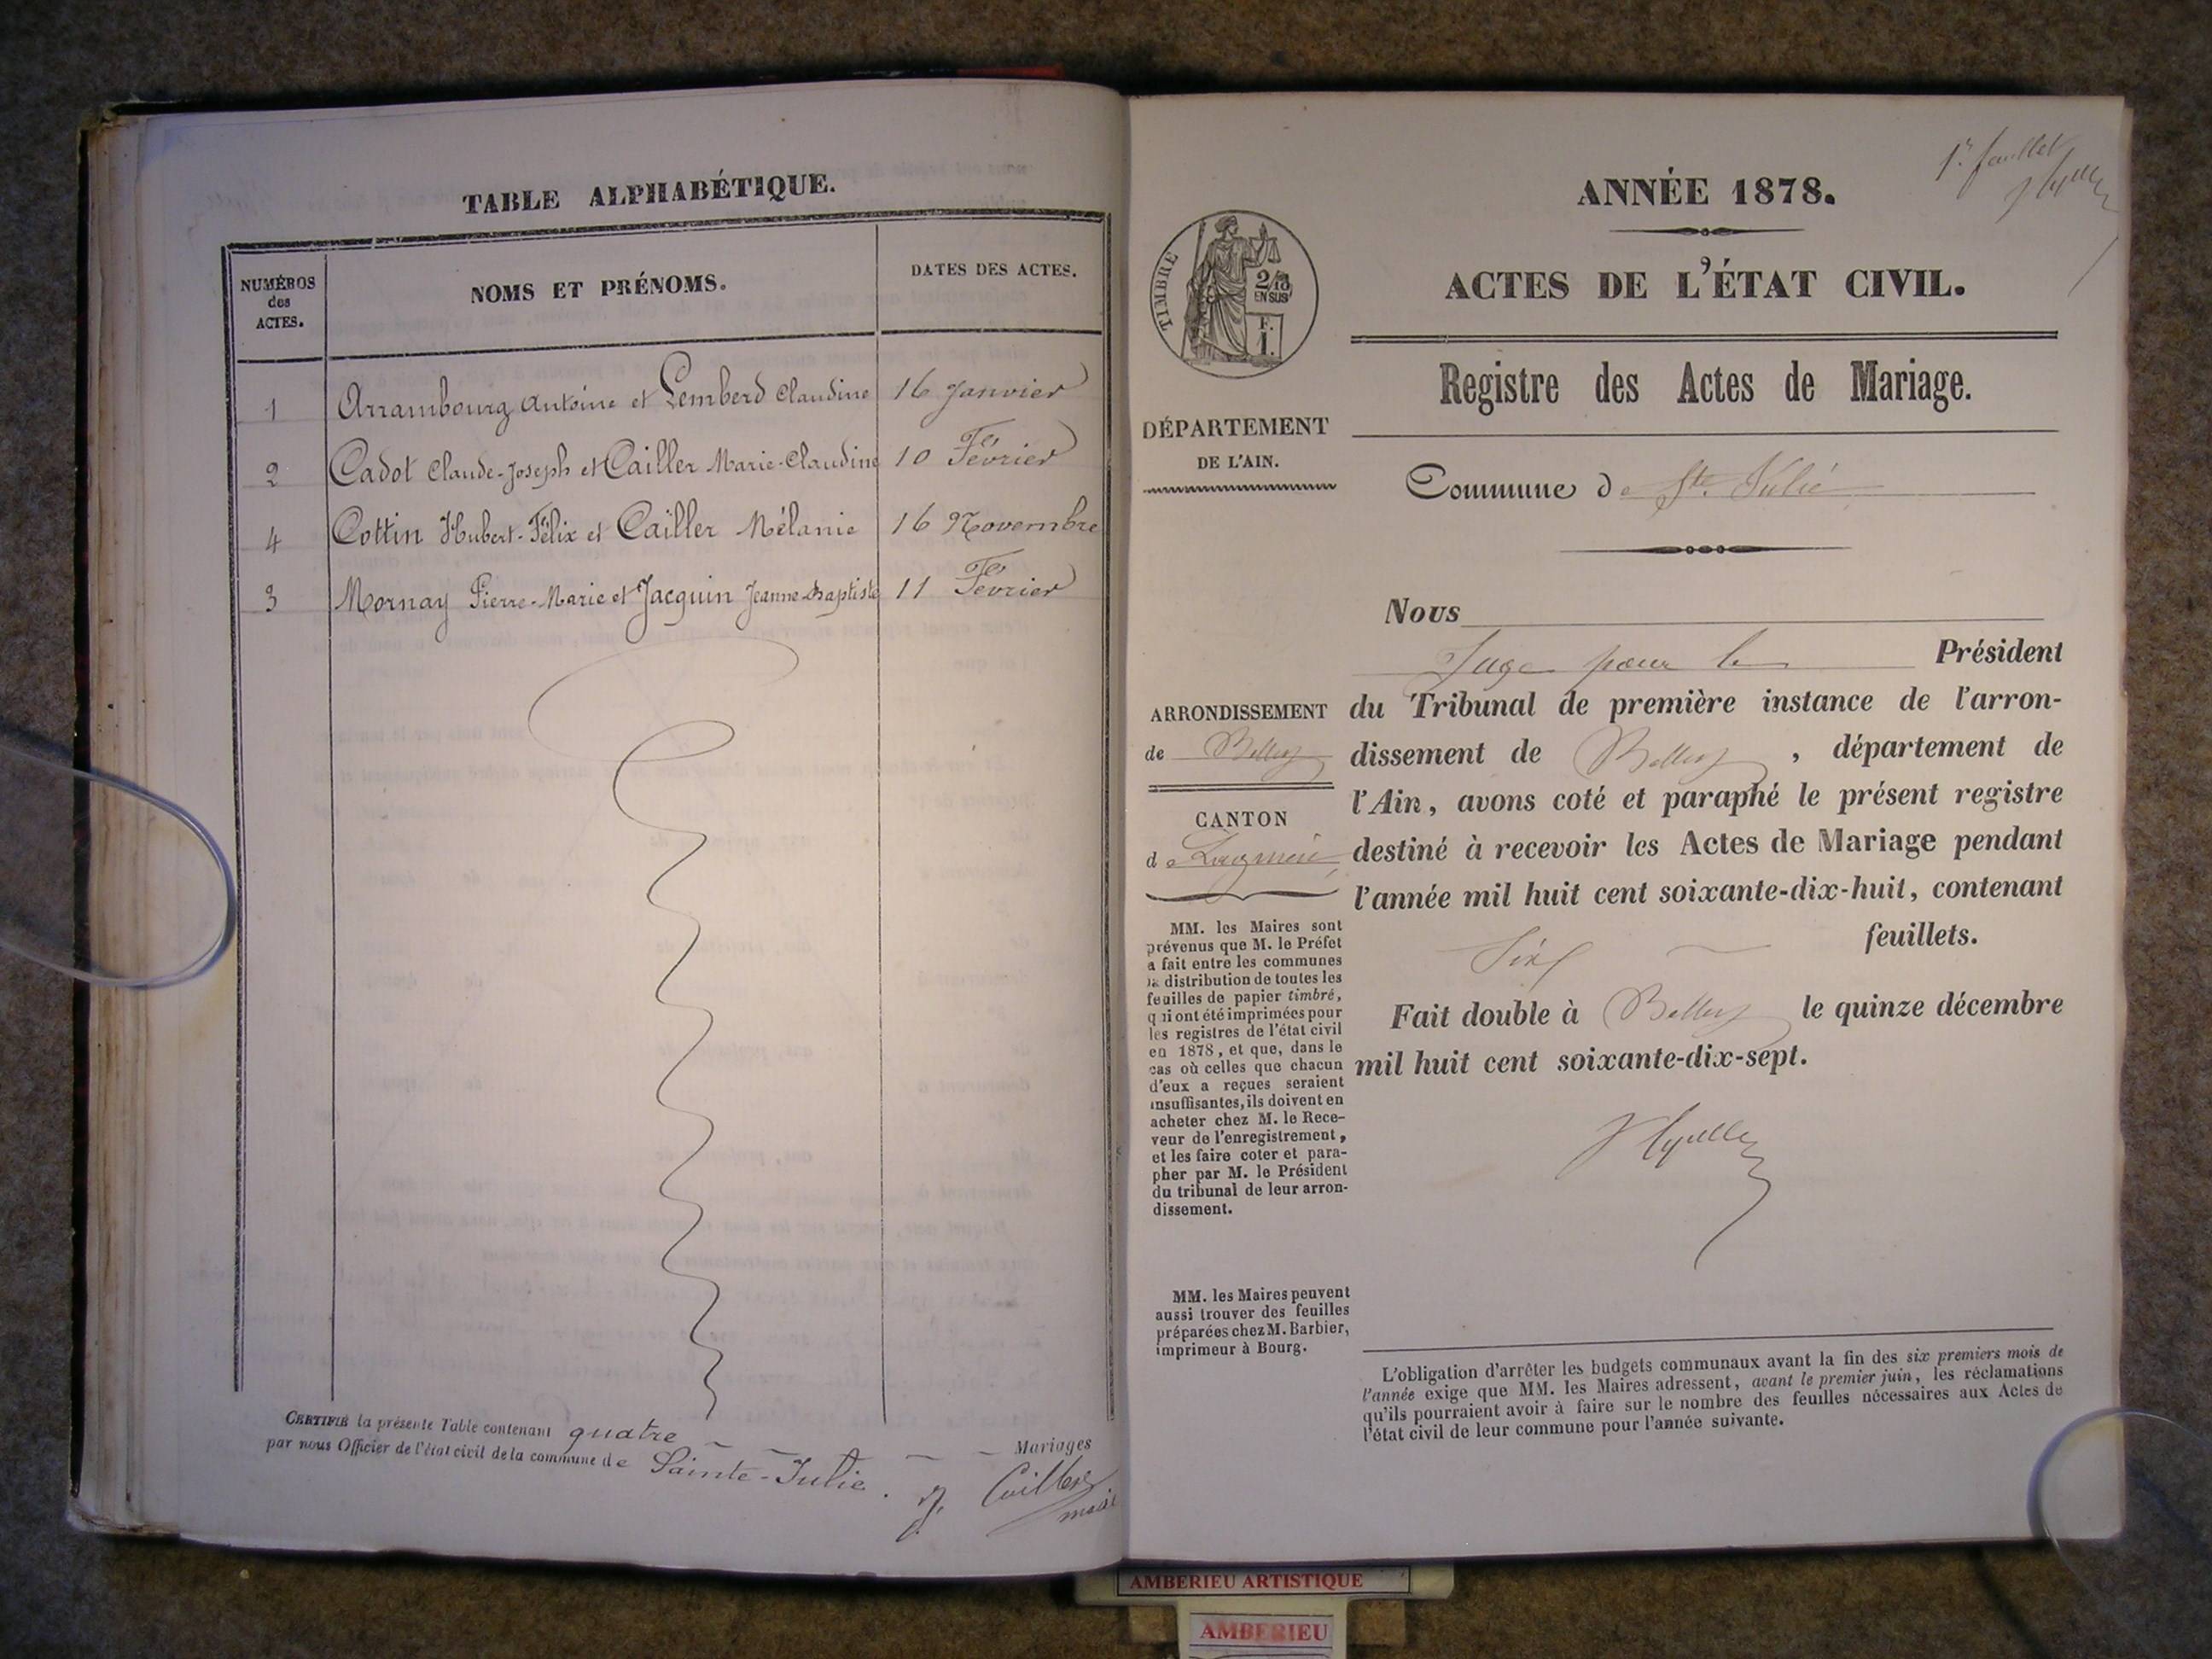 TABLE ALPHABÉTIQUE.
NUMÉROS des ACTES.
NOMS ET PRÉNOMS.
DATES DES ACTES.
1 Arrambourg Antoine et Lemberd Claudine 16 Janvier
2 Cadot Claude-Joseph et Cailler Marie-Claudine 10 Février
4 Cottin Hubert-Félix et Cailler Mélanie 16 Novembre
3 Mornay Pierre-Marie et Jacquin Jeanne-Baptiste 11 Février
CERTIFIÉ la présente Table contenant quatre Mariages
par nous Officier de l'état civil de la commune de Sainte-Julie.
Cailler
maire
1er feuillet
ANNÉE 1878.
ACTES DE L'ÉTAT CIVIL.
TIMBRE
2/10
EN SUS
F.
1.
Registre des Actes de Mariage.
DÉPARTEMENT
DE L'AIN.
Commune de Ste. Julie
Nous
Juge pour le Président
ARRONDISSEMENT
de Belley
CANTON
de Lagnieu
du Tribunal de première instance de l'arron-
dissement de Belley, département de
l'Ain, avons coté et paraphé le présent registre
destiné à recevoir les Actes de Mariage pendant
l'année mil huit cent soixante-dix-huit, contenant
Six feuillets.
Fait double à Belley le quinze décembre
mil huit cent soixante-dix-sept.
MM. les Maires sont
prévenus que M. le Préfet
a fait entre les communes
la distribution de toutes les
feuilles de papier timbré,
qui ont été imprimées pour
les registres de l'état civil
en 1878, et que, dans le
cas où celles que chacun
d'eux a reçues seraient
insuffisantes, ils doivent en
acheter chez M. le Rece-
veur de l'enregistrement,
et les faire coter et para-
pher par M. le Président
du tribunal de leur arron-
dissement.
MM. les Maires peuvent
aussi trouver des feuilles
préparées chez M. Barbier,
imprimeur à Bourg.
L'obligation d'arrêter les budgets communaux avant la fin des six premiers mois de
l'année exige que MM. les Maires adressent, avant le premier juin, les réclamations
qu'ils pourraient avoir à faire sur le nombre des feuilles nécessaires aux Actes de
l'état civil de leur commune pour l'année suivante.
AMBERIEU ARTISTIQUE
AMBERIEU